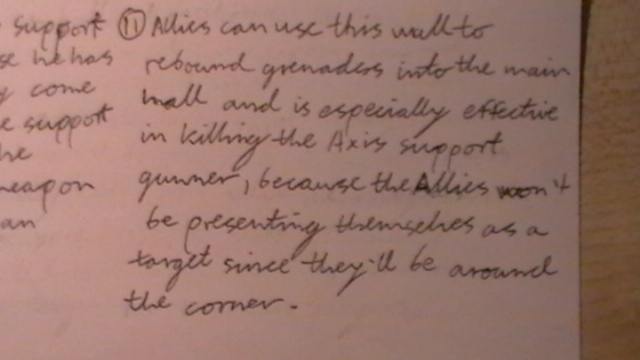 support
se he has
y come
e support
he
weapon
an
11 Allies can use this wall to
rebound grenaders into the main
hall and is especially effective
in killing the Axis support
gunner, because the Allies won't
be presenting themselves as a
target since they'll be around
the corner.